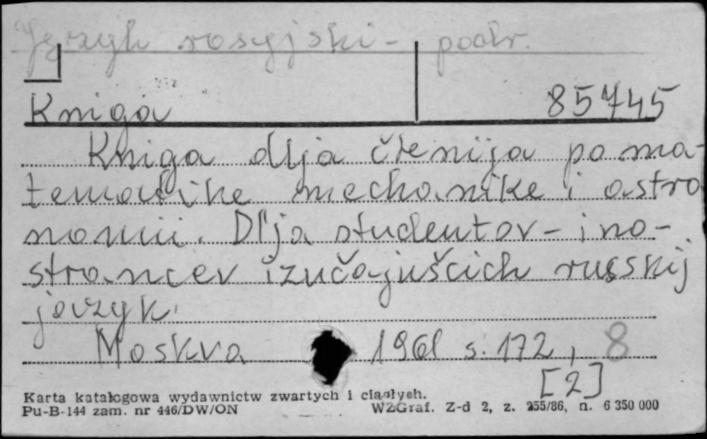 Język rosyjski - podr.
Kniga 85745
Kniga dlja čtenija po ma-
tematike mechanike i astro
nomii. Dlja studentov - ino-
strancev izučajuščich russkij
jazyk.
Moskva 1961 s. 172, 8
[2]
Karta katalogowa wydawnictw zwartych i ciągłych.
Pu-B-144 zam. nr 446/DW/ON WZGraf. Z-d 2, z. 255/86, n. 6 350 000